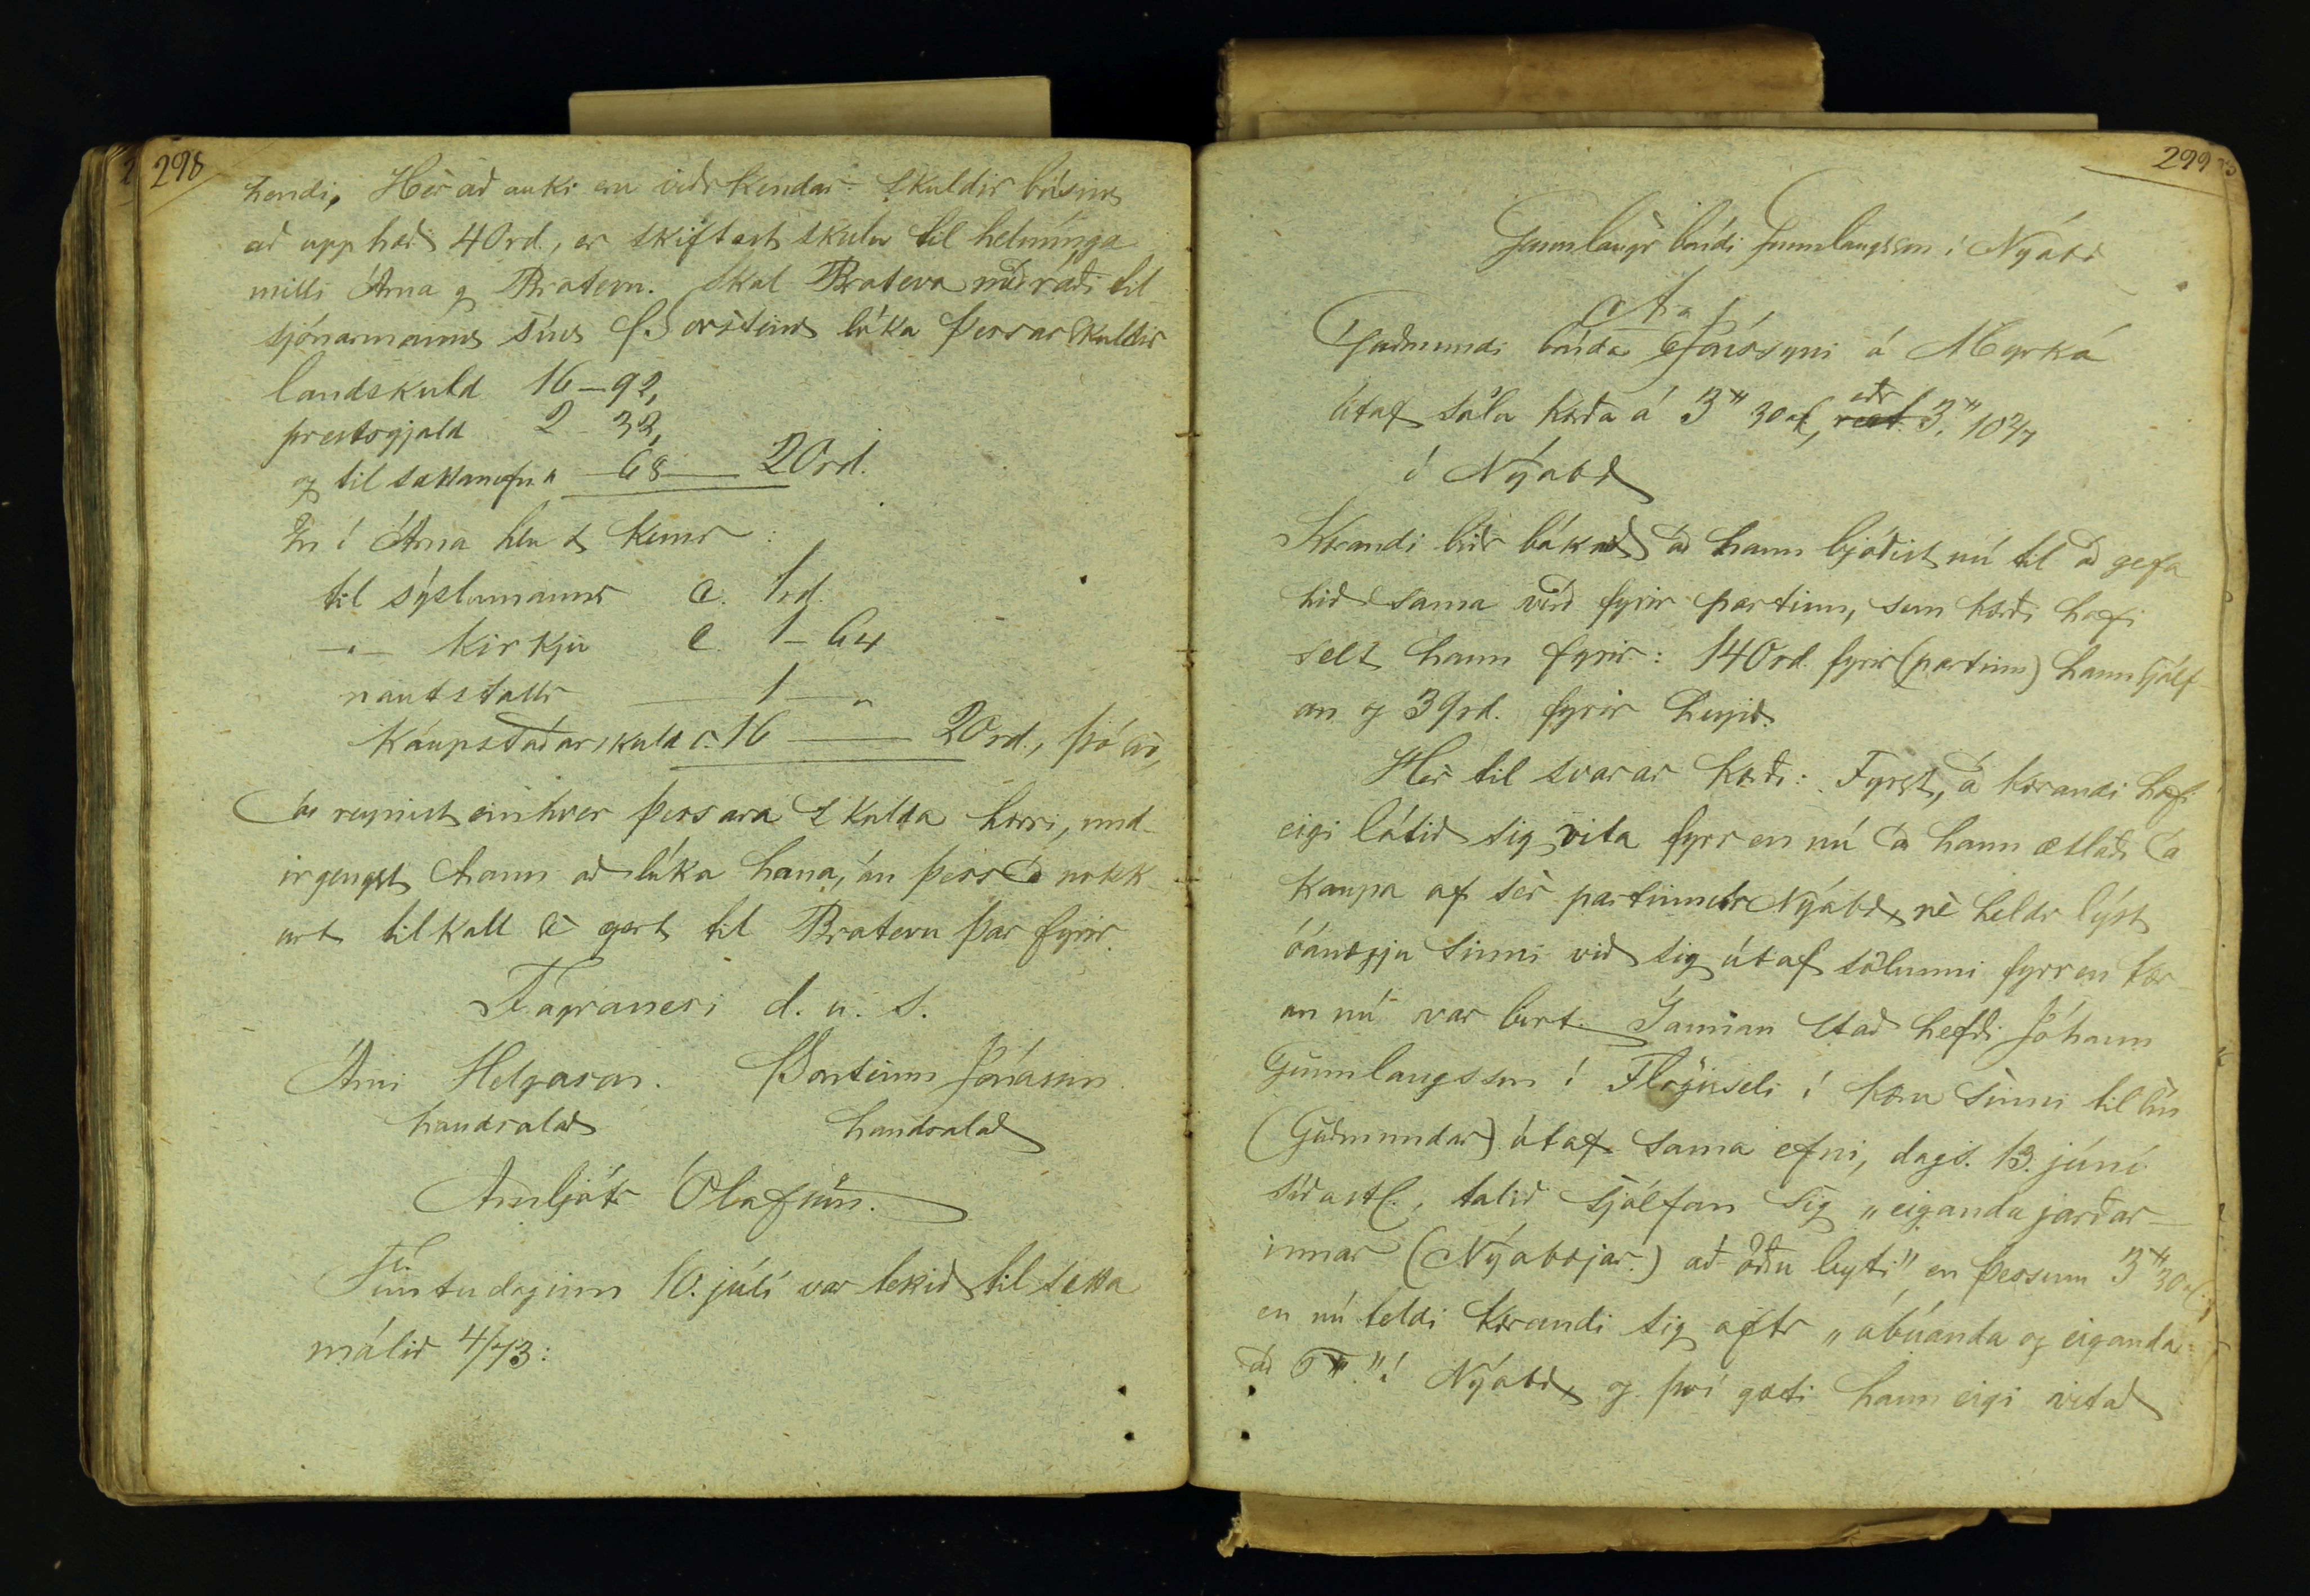 298
hendi. Hèr að auki eru viðrkendar skuldir búsins
að upphæð 40rd., er skiftast skulu til helmínga
milli Árna og Brotevu. Skal Broteva með ráði til-
sjónarmanns síns Þorsteins lúka þessar skuldir
landskuld 16-92,
prestsgjald 2-32,
og til sáttanefn. " 68 — 20rd.
En í Árna hlut kemr:
til sýslumanns c. 1rd.
-"- kirkju c. 1-64
nautstollr — 1 — "
kaupstaðarskuld c. 16 — 20rd., þó svo,
að reynist einhver þessara skulda hærri, und-
irgengst hann að lúka hana, án þess að nokk-
urt tilkall sè gert til Brotevu þar fyrir.
Fagranesi d. u. s.
Árni Helgason. Þorsteinn Jónasson
handsalað handsalað
Arnljótr Ólafsson.
Fimtudaginn 10. júlí var tekið til sátta
málið 4/73:
299
Gunnlaugr bóndi Gunnlaugsson í Nýabæ
Guðmundi bónda Jónssyni á Myrká
útaf sölu hans á 3" 30 al, eðr 3" 10 2/7
í Nýabæ
Kærandi biðr bókað að hann bjóðist nú til að gefa
hið sama verð fyrir partinn, sem kærði hafi
selt hann fyrir: 140rd. fyrir (partinn) hann sjálf-
an og 39rd. fyrir húsið.
Hèr til svarar kærði: Fyrst, að kærandi hafi
eigi látið sig vita fyrr en nú að hann ætlaði að
kaupa af sèr partinn úr Nýabæ, nè heldr lýst
óánægju sinni við sig útaf sölunni fyrr en kær-
an nú var birt. Í annan stað hefði Jóhann
Gunnlaugsson í Flöguseli í kæru sinni til sín
(Guðmundar) útaf sama efni, dags. 13. júní
síðastl., talið sjálfan sig „eiganda jarðar-
innar (Nýabæjar) að öðru leyti" en þessum 3" 30 al.
en nú teldi kærandi sig aftr „ábúanda og eiganda
að í Nýabæ, og því gæti hann eigi vitað